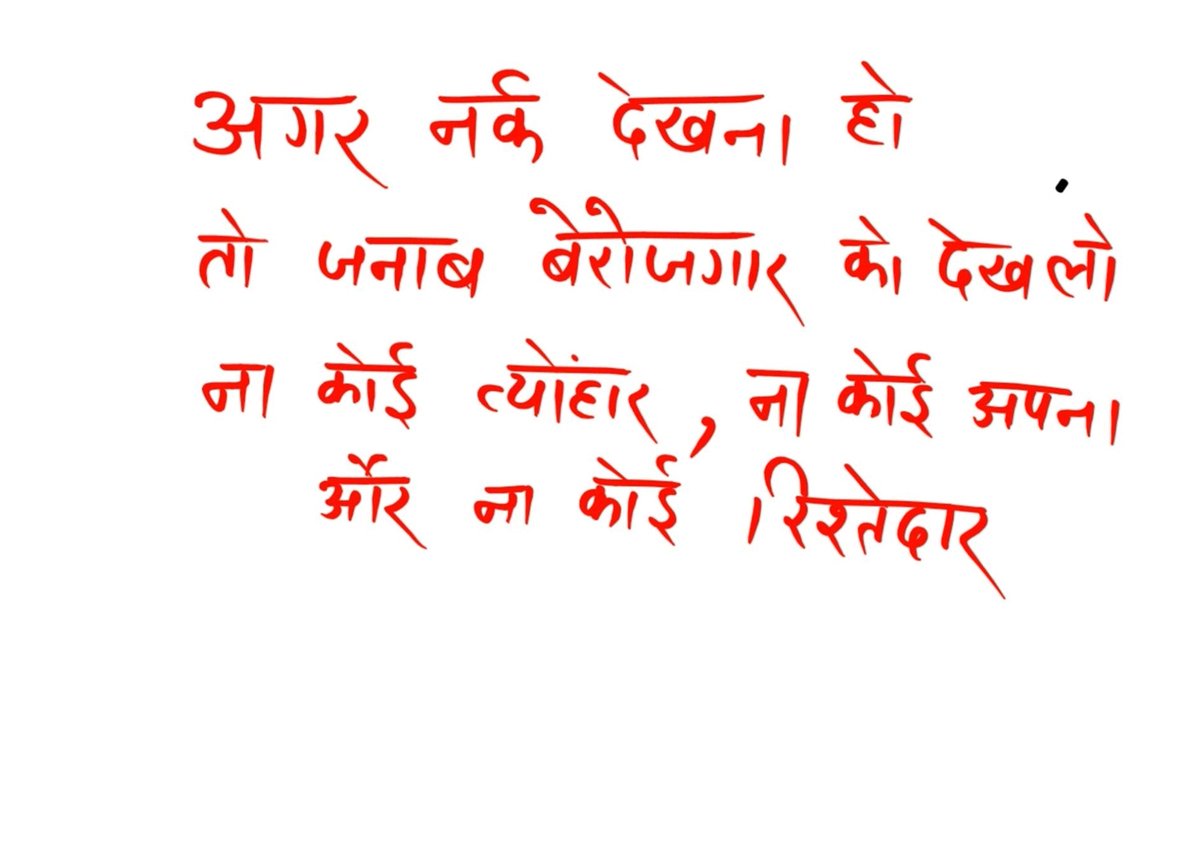 अगर नर्क देखना हो
तो जनाब बेरोजगार को देखलो
ना कोई त्योंहार, ना कोई अपना
और ना कोई रिश्तेदार